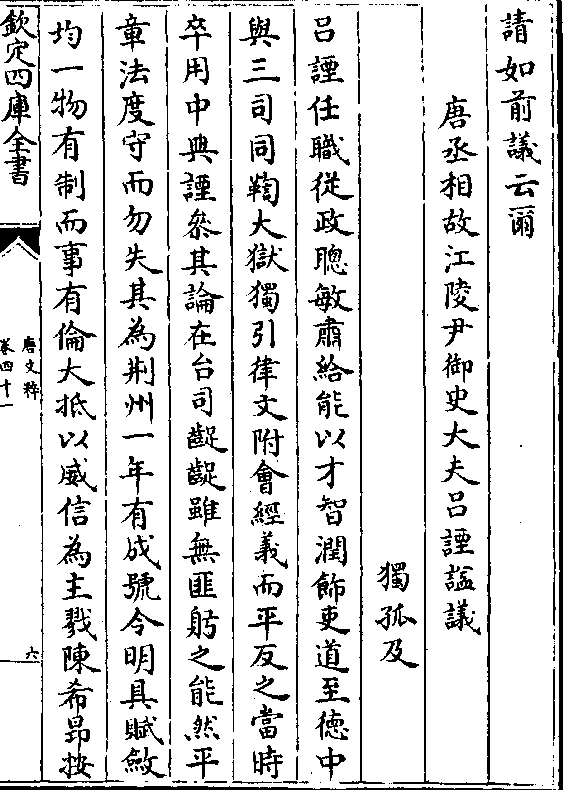 請如前議云爾
唐丞相故江陵尹御史大夫吕諲諡議
獨孤及
吕諲任職從政聰敏肅給能以才智潤飾吏道至徳中
與三司同鞫大獄獨引律文附會經義而平反之當時
卒用中興諲叅其論在台司齪齪雖無匪躬之能然平
章法度守而勿失其為荆州一年有成號令明具賦斂
均一物有制而事有倫大抵以威信為主戮陳希昂按
欽定四庫全書
唐文粹
卷四十一
六